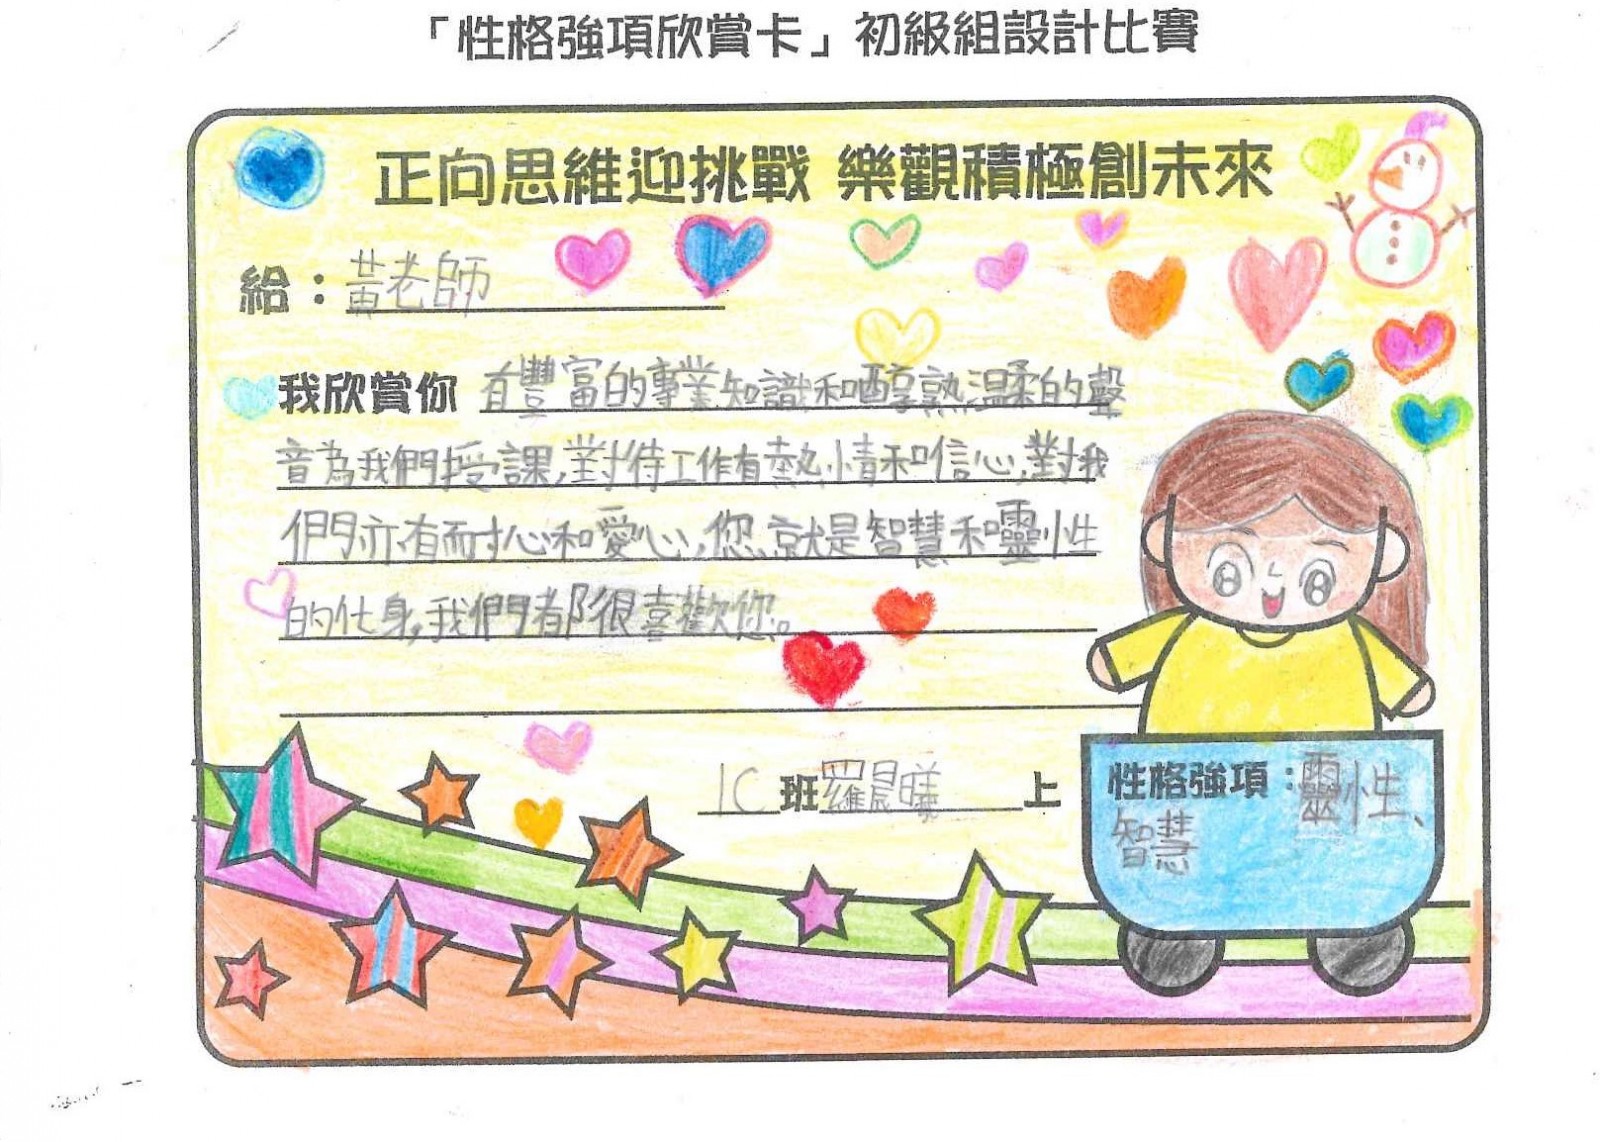 「性格強項欣賞卡」初級組設計比賽
正向思維迎挑戰 樂觀積極創未來
給：黃老師
我欣賞你 有豐富的專業知識和醇熟溫柔的聲
音為我們授課，對待工作有熱情和信心，對我
們亦有耐心和愛心，您就是智慧和靈性
的化身，我們都很喜歡您。
1C班羅晨曦上
性格強項：靈性、
智慧